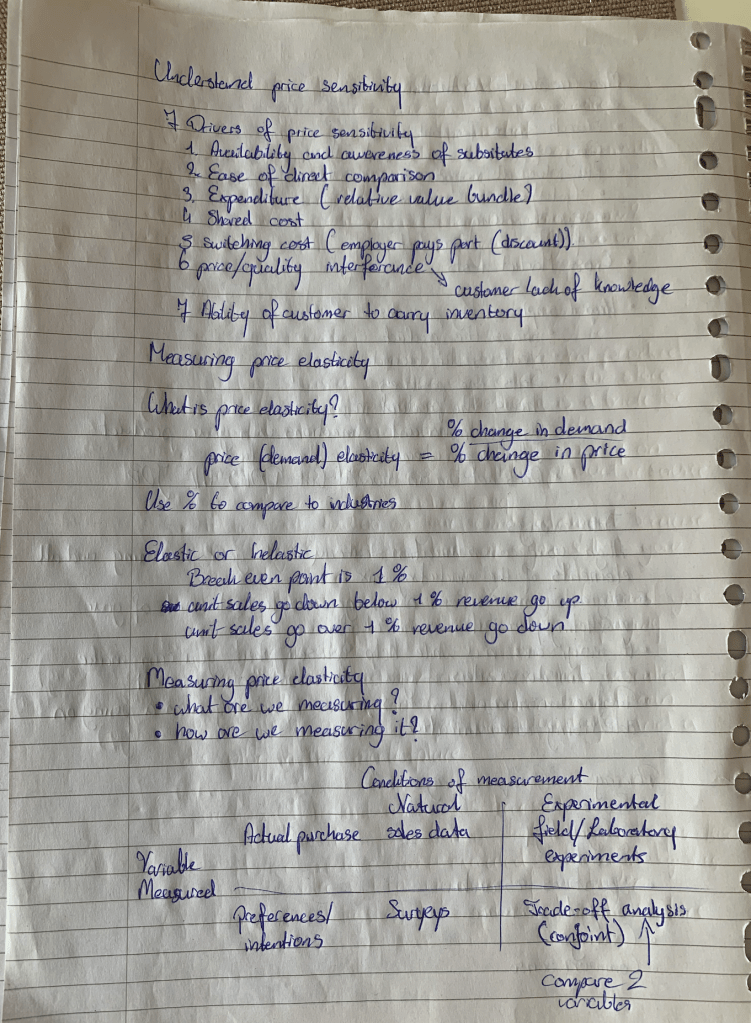 Understand price sensitivity
7 Drivers of price sensitivity
1. Availability and awareness of subsitutes
2. Ease of direct comparison
3. Expenditure (relative value bundle)
4 Shared cost
5 switching cost (employer pays part (discount))
6 price/quality interferance ↘
customer lack of knowledge
7 Ability of customer to carry inventory
Measuring price elasticity
What is price elasticity?
% change in demand
price (demand) elasticity = % change in price
Use % to compare to industries
Elastic or Inelastic
Break even point is 1%
unit sales go down below 1% revenue go up
unit sales go over 1% revenue go down
Measuring price elasticity
• what are we measuring?
• how are we measuring it?
Conditions of measurement
Natural Experimental
Actual purchase sales data field/Laboratory
experiments
Variable
Measured
Preferences/ Surveys Trade-off analysis
intentions (conjoint) ↑
compare 2
variables